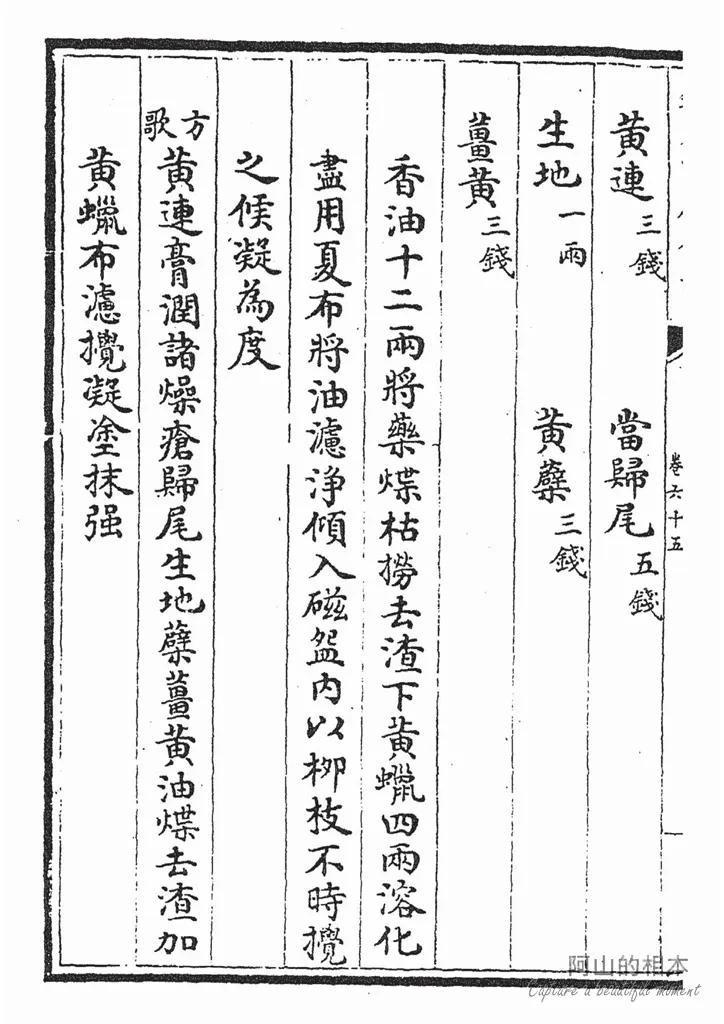 卷六十五
黃連三錢 當歸尾五錢
生地一兩 黃蘗三錢
薑黃三錢
香油十二兩將藥煠枯撈去渣下黃蠟四兩溶化
盡用夏布將油濾淨傾入磁盌內以柳枝不時攪
之候凝為度
方歌
黃連膏潤諸燥瘡歸尾生地蘗薑黃油煠去渣加
黃蠟布濾攪凝塗抹强
阿山的相本
Capture a beautiful moment